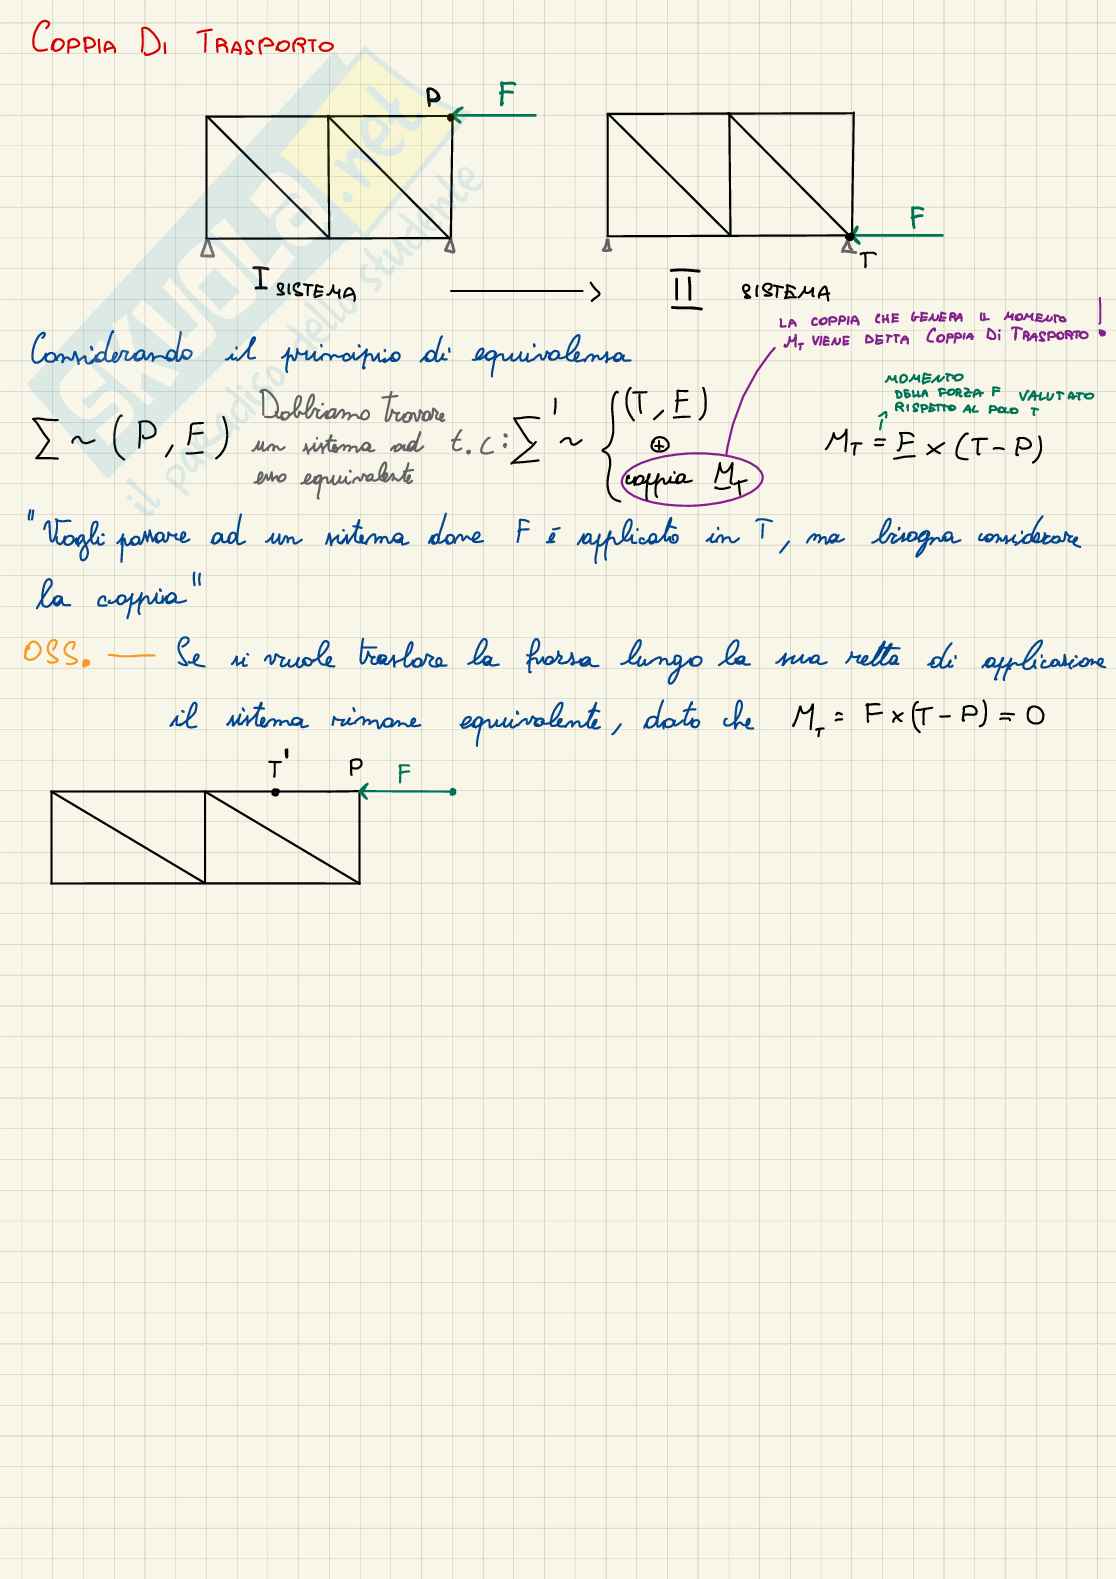 COPPIA DI TRASPORTO
P F
F
T
I SISTEMA II SISTEMA
LA COPPIA CHE GENERA IL MOMENTO
M_T VIENE DETTA COPPIA DI TRASPORTO !
Considerando il principio di equivalenza
MOMENTO
DELLA FORZA F VALUTATO
RISPETTO AL POLO T
Σ ~ (P, F) Dobbiamo trovare
un sistema ad
esso equivalente
t.c: Σ' ~ { (T, F)
⊕
coppia M_T
M_T = F × (T - P)
"Vogli passare ad un sistema dove F é applicato in T, ma bisogna considerare
la coppia"
OSS. — Se si vuole traslare la forza lungo la sua retta di applicazione
il sistema rimane equivalente, dato che M_T = F × (T - P) = 0
T' P F
SKUOLA.net
il paradiso dello studente